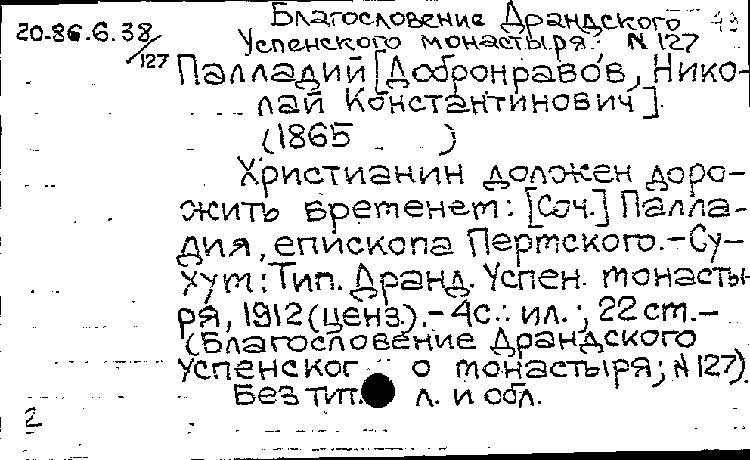 Благословение Драндского 49
20.86.6.38/127 Успенского монастыря; N 127
Палладий [Добронравов, Нико-
лай Константинович]
(1865     )
Христианин должен доро-
жить временем: [Соч.] Палла-
дия, епископа Пермского.-Су-
хум: Тип. Дранд. Успен. монасты-
ря, 1912 (ценз.).- 4с.: ил.; 22 cm.-
(Благословение Драндского
Успенског о монастыря; N 127)
Без тит. л. и обл.
2